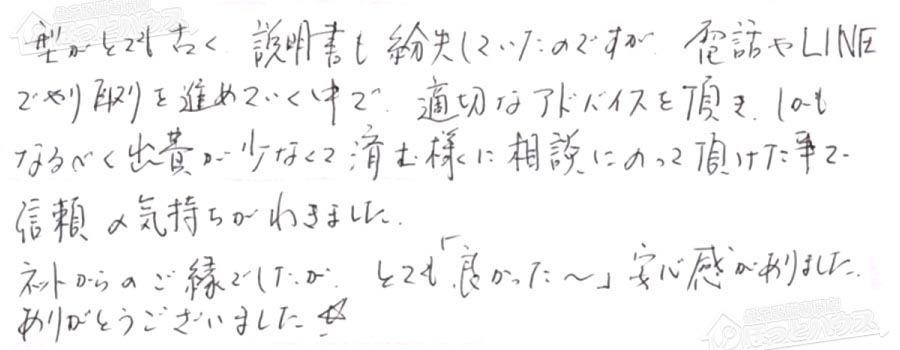 型がとても古く、説明書も紛失していたのですが、電話やLINE
でやり取りを進めていく中で、適切なアドバイスを頂き、しかも
なるべく出費が少なくて済む様に相談にのって頂けた事で
信頼の気持ちがわきました。
ネットからのご縁でしたが、とても「良かった〜」安心感がありました。
ありがとうございました☆
ほっとハウス